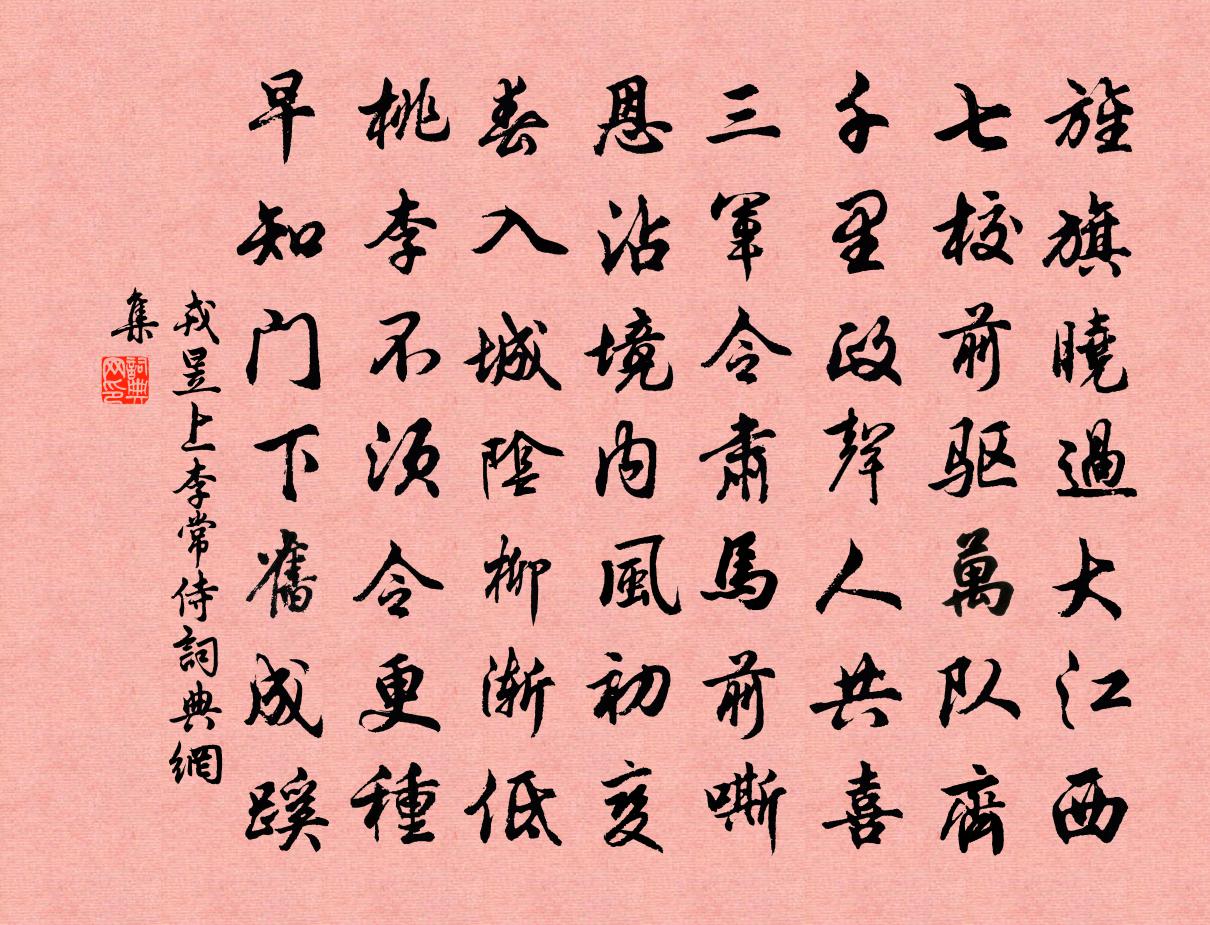 旌旗曉過大江西
七校前驱萬队齊
千里政聲人共喜
三軍令肅馬前嘶
恩沾境内風初変
春入城陰柳渐低
桃李不须令更種
早知门下舊成蹊
戎昱上李常侍詞典網
集
詞典网印